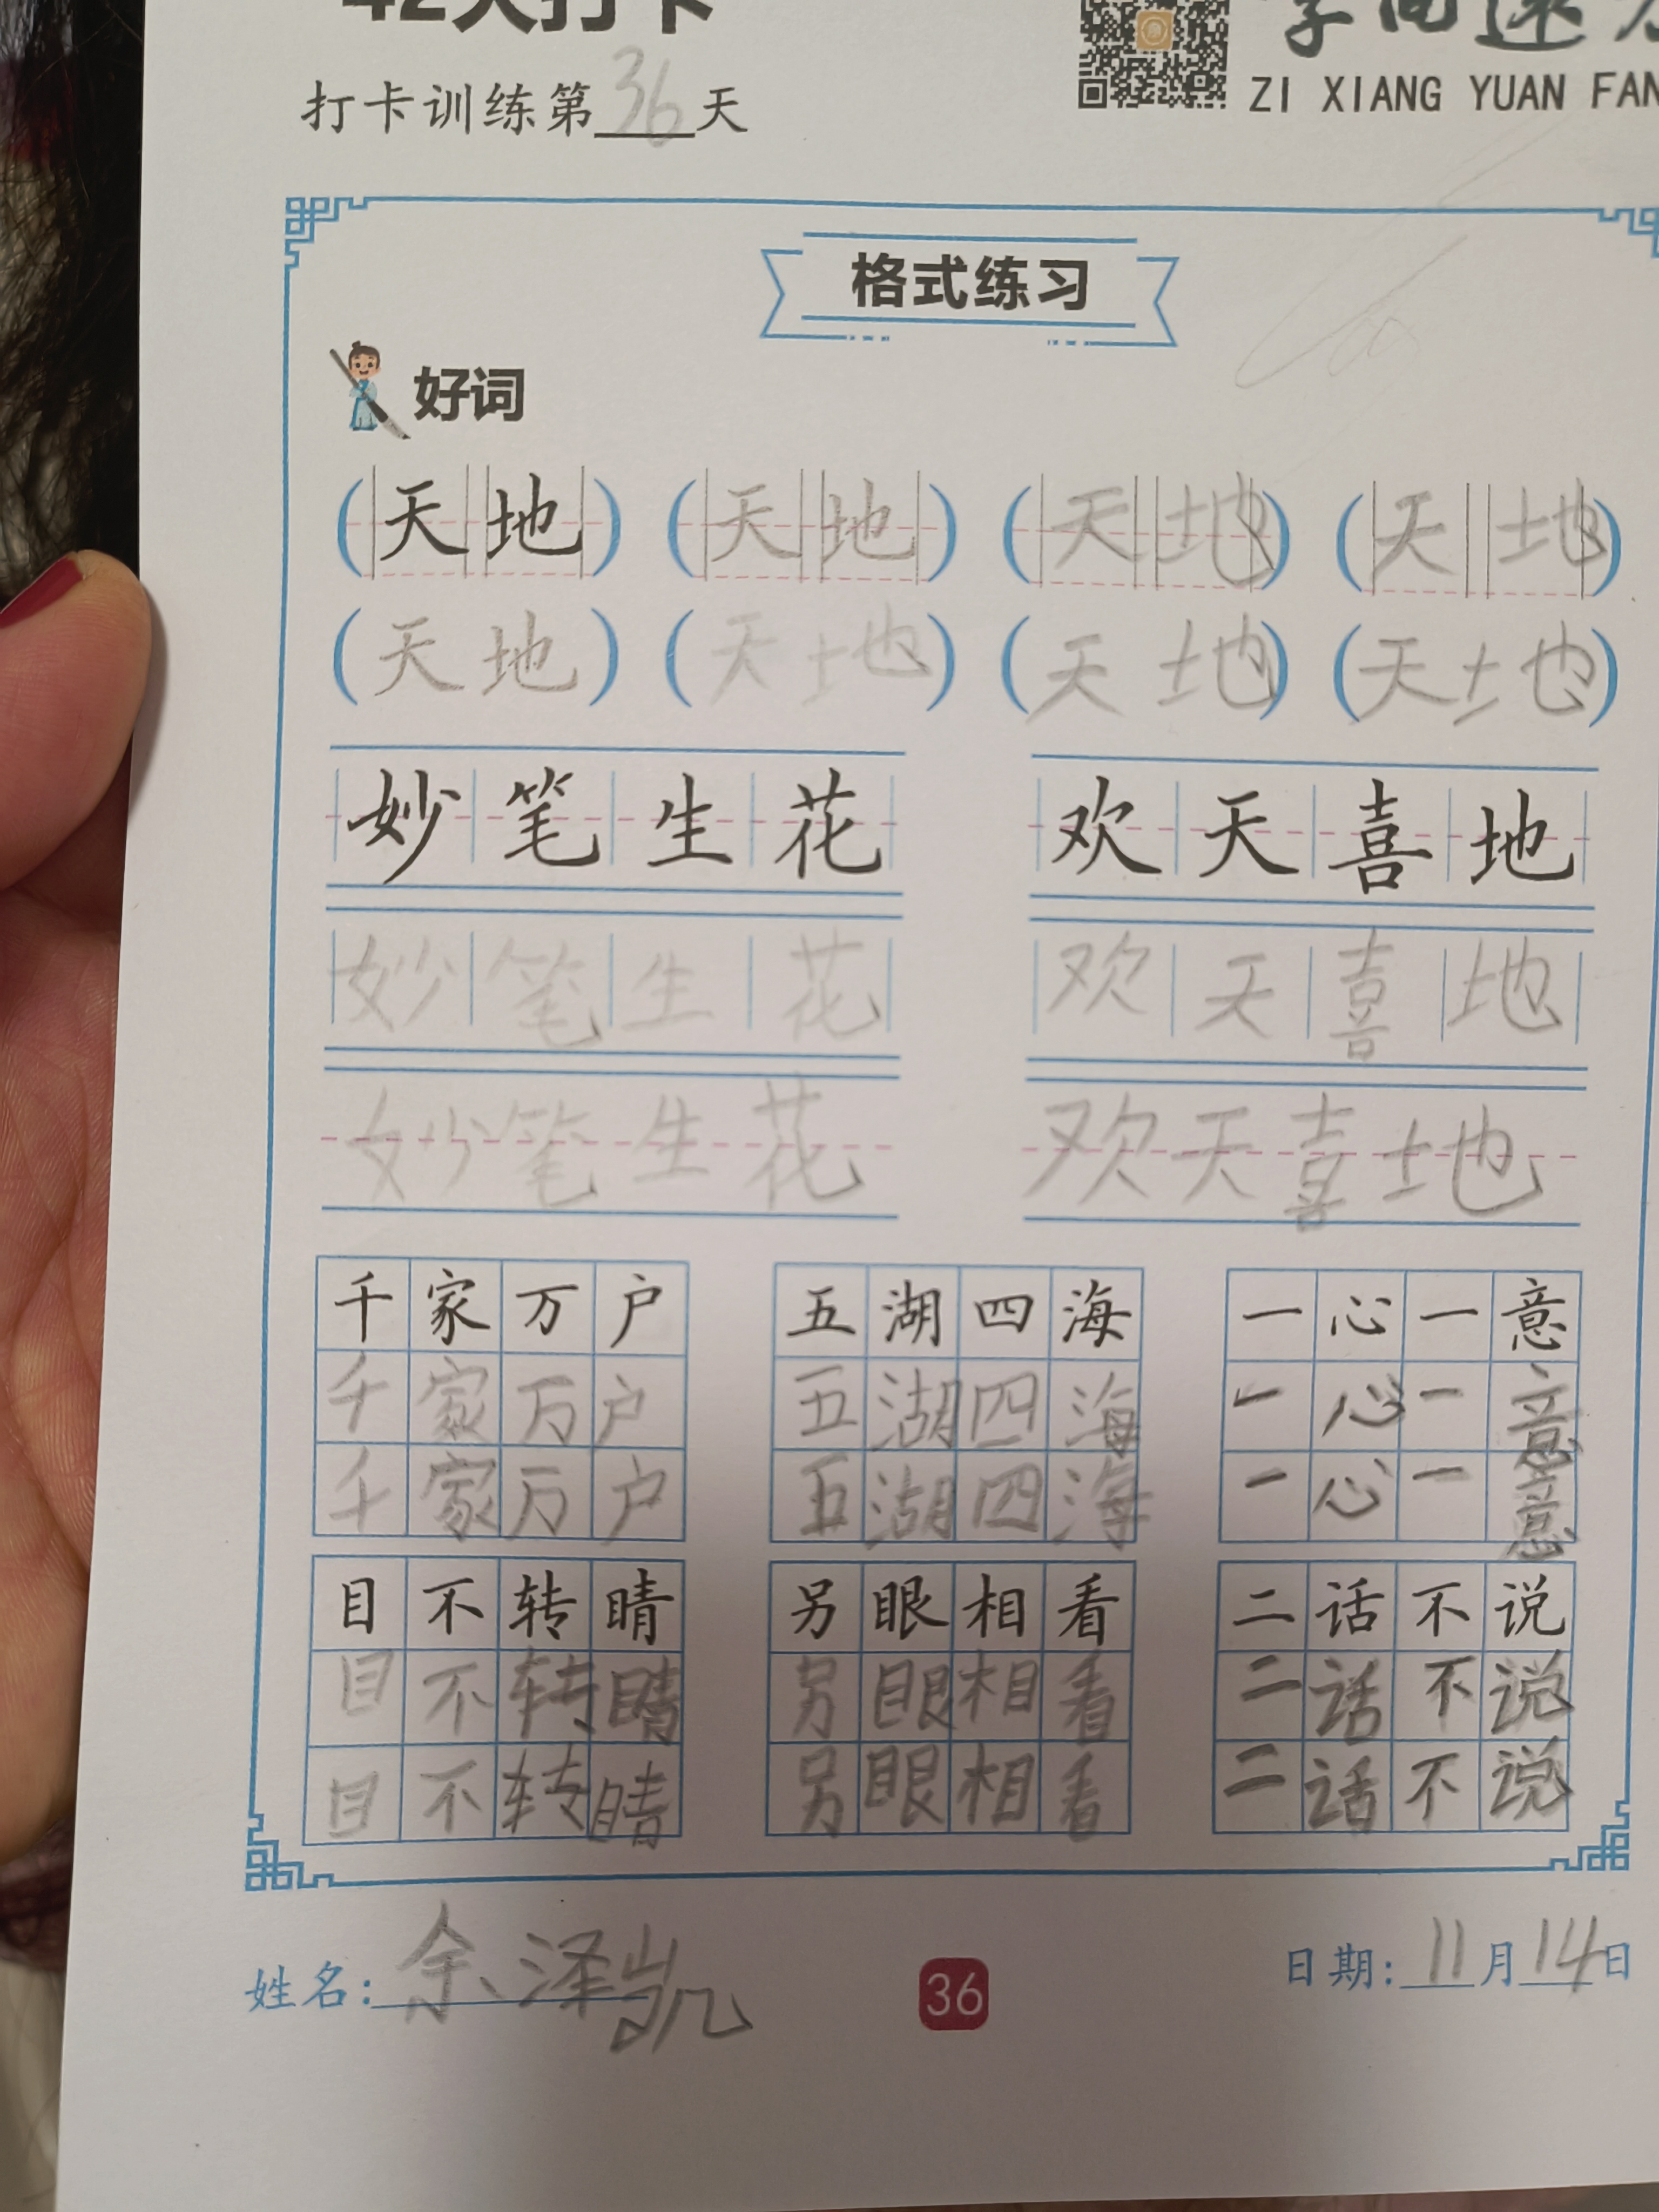 42天打卡
ZI XIANG YUAN FAN
打卡训练第36天
格式练习
好词
(天地) (天地) (天地) (天地)
(天地) (天地) (天地) (天地)
妙笔生花 欢天喜地
妙笔生花 欢天喜地
妙笔生花 欢天喜地
千家万户 五湖四海 一心一意
千家万户 五湖四海 一心一意
千家万户 五湖四海 一心一意
目不转睛 另眼相看 二话不说
目不转睛 另眼相看 二话不说
目不转睛 另眼相看 二话不说
姓名:余泽凯 36 日期:11月14日